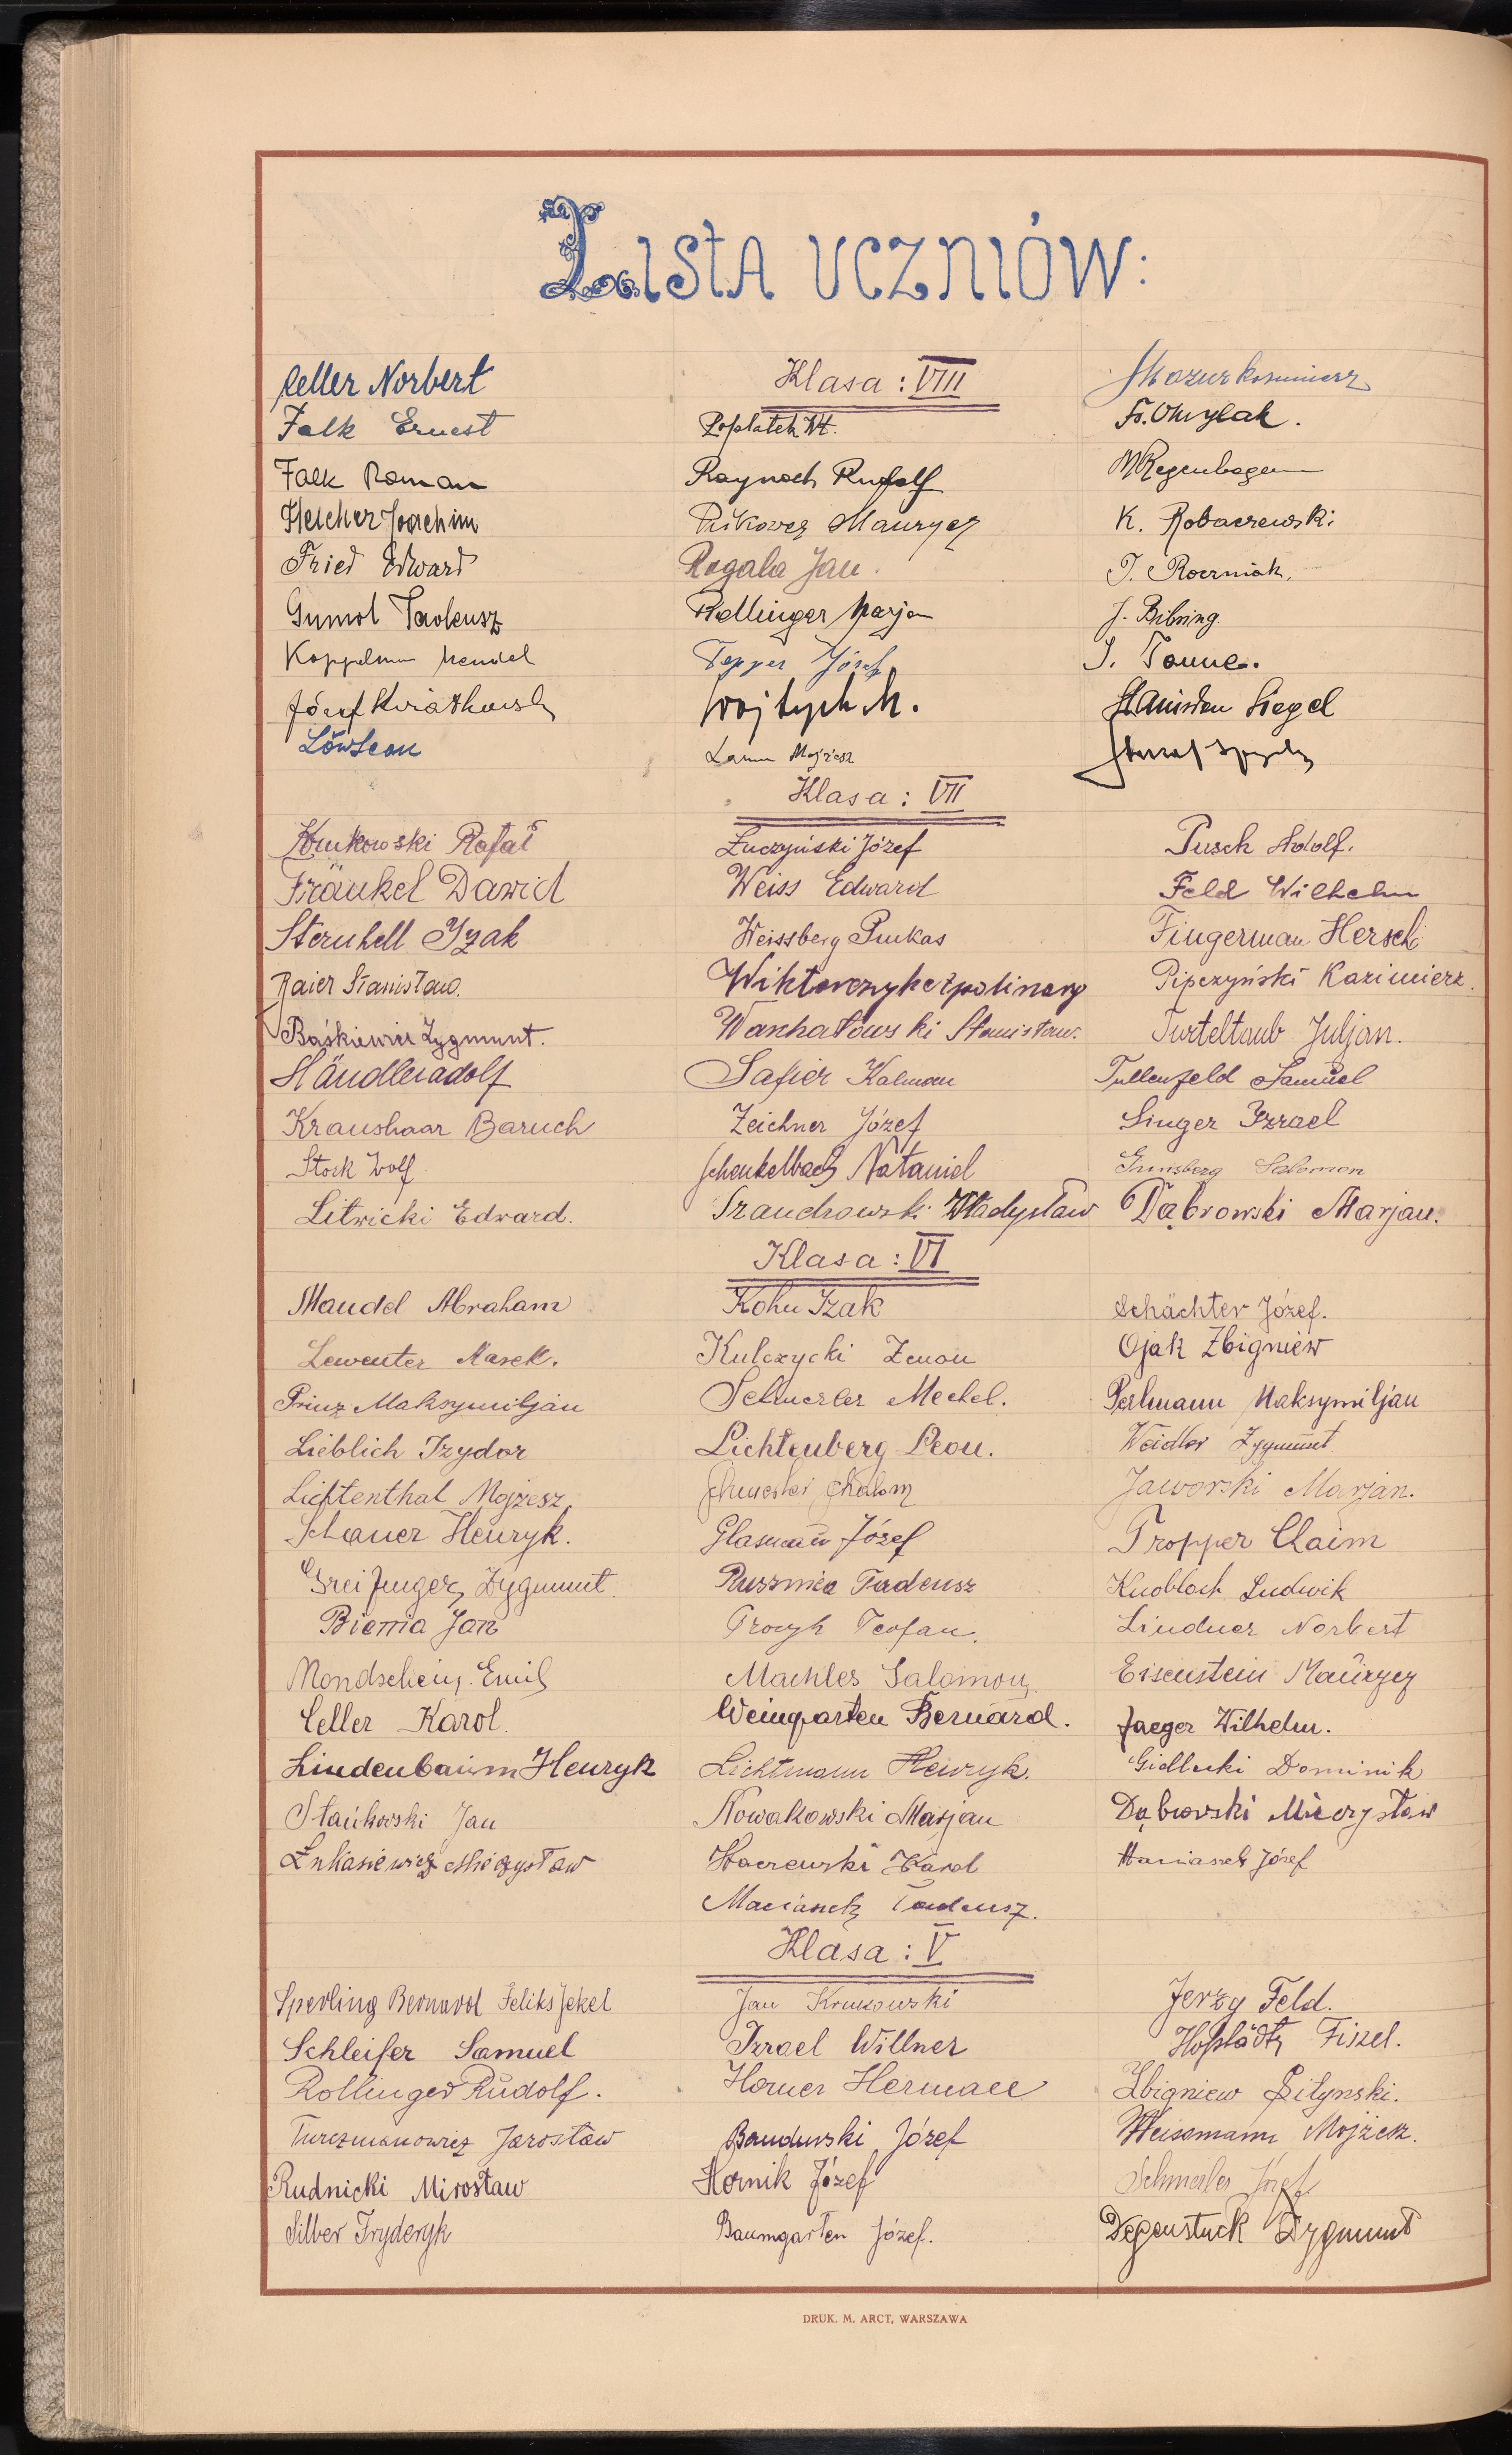 Lista uczniów:
Klasa: VIII
Celler Norbert
Falk Ernest
Falk Roman
Fleicher Joachim
Fried Edward
Gumol Tadeusz
Koppelman Mendel
Józef Kwiatkowski
Löw Leon
Poplatek Wł.
Raynoch Rudolf
Pistkower Maurycy
Rogala Jan.
Rellinger Marjan
Tepper Józef
Wojtych M.
Mojżesz
Mazur Kazimierz
Fr. Chrylak.
M Regenbogen
K. Robaczewski
J. Roczniak.
J. Bibring.
J. Tanne.
Stanisław Siegel
Klasa: VII
Krukowski Rafał
Fränkel Dawid
Sternhell Izak
Baier Stanisław.
Baśkiewicz Zygmunt.
Händler Adolf
Kraushaar Baruch
Stock Wolf
Litwicki Edward.
Łuczyński Józef
Weiss Edward
Weissberg Pinkas
Wiktorczyk Apolinary
Wachałowski Stanisław.
Safier Kalman
Zeichner Józef
Schenkelbach Nataniel
Trandrowski Władysław
Pusch Adolf.
Feld Wilhelm
Fingerman Hersch
Pipczyński Kazimierz.
Turteltaub Juljan.
Tullenfeld Samuel
Singer Izrael
Ginsberg Salomon
Dąbrowski Marjan.
Klasa: VI
Mandel Abraham
Lewenter Marek.
Prinz Maksymiljan
Lieblich Izydor
Lichtenthal Mojżesz.
Schauer Henryk.
Greifinger Zygmunt
Biernia Jan
Mondschein Emil
Celler Karol.
Lindenbaum Henryk
Stańkowski Jan
Łukasiewicz Mieczysław
Kohn Izak
Kulczycki Zenon
Schmerler Mechel.
Lichtenberg Leon.
Schmerler Schalom
Glasmann Józef
Puszmica Tadeusz
Procyk Teofan.
Machles Salomon.
Weingarten Bernard.
Lichtmann Henryk.
Nowakowski Marjan
Karol
Macianek Tadeusz.
Schächter Józef.
Ojak Zbigniew
Perlmann Maksymiljan
Weidler Zygmunt
Jaworski Marjan.
Tropper Chaim
Knobloch Ludwik
Lindner Norbert
Eisenstein Maurycy
Jaeger Wilhelm.
Giedlecki Dominik
Dąbrowski Mieczysław
Józef
Klasa: V
Sperling Bernard Feliks Jekel
Schleifer Samuel
Rollinger Rudolf.
Turczmanowicz Jarosław
Rudnicki Mirosław
Silber Fryderyk
Jan Krukowski
Izrael Willner
Horner Herman
Bandurski Józef
Hornik Józef
Baumgarten Józef.
Jerzy Feld.
Hofstädter Fiszel.
Zbigniew Pilynski.
Weissmann Mojżesz.
Schmerler Józef
Degenstuck Zygmunt
DRUK. M. ARCT, WARSZAWA